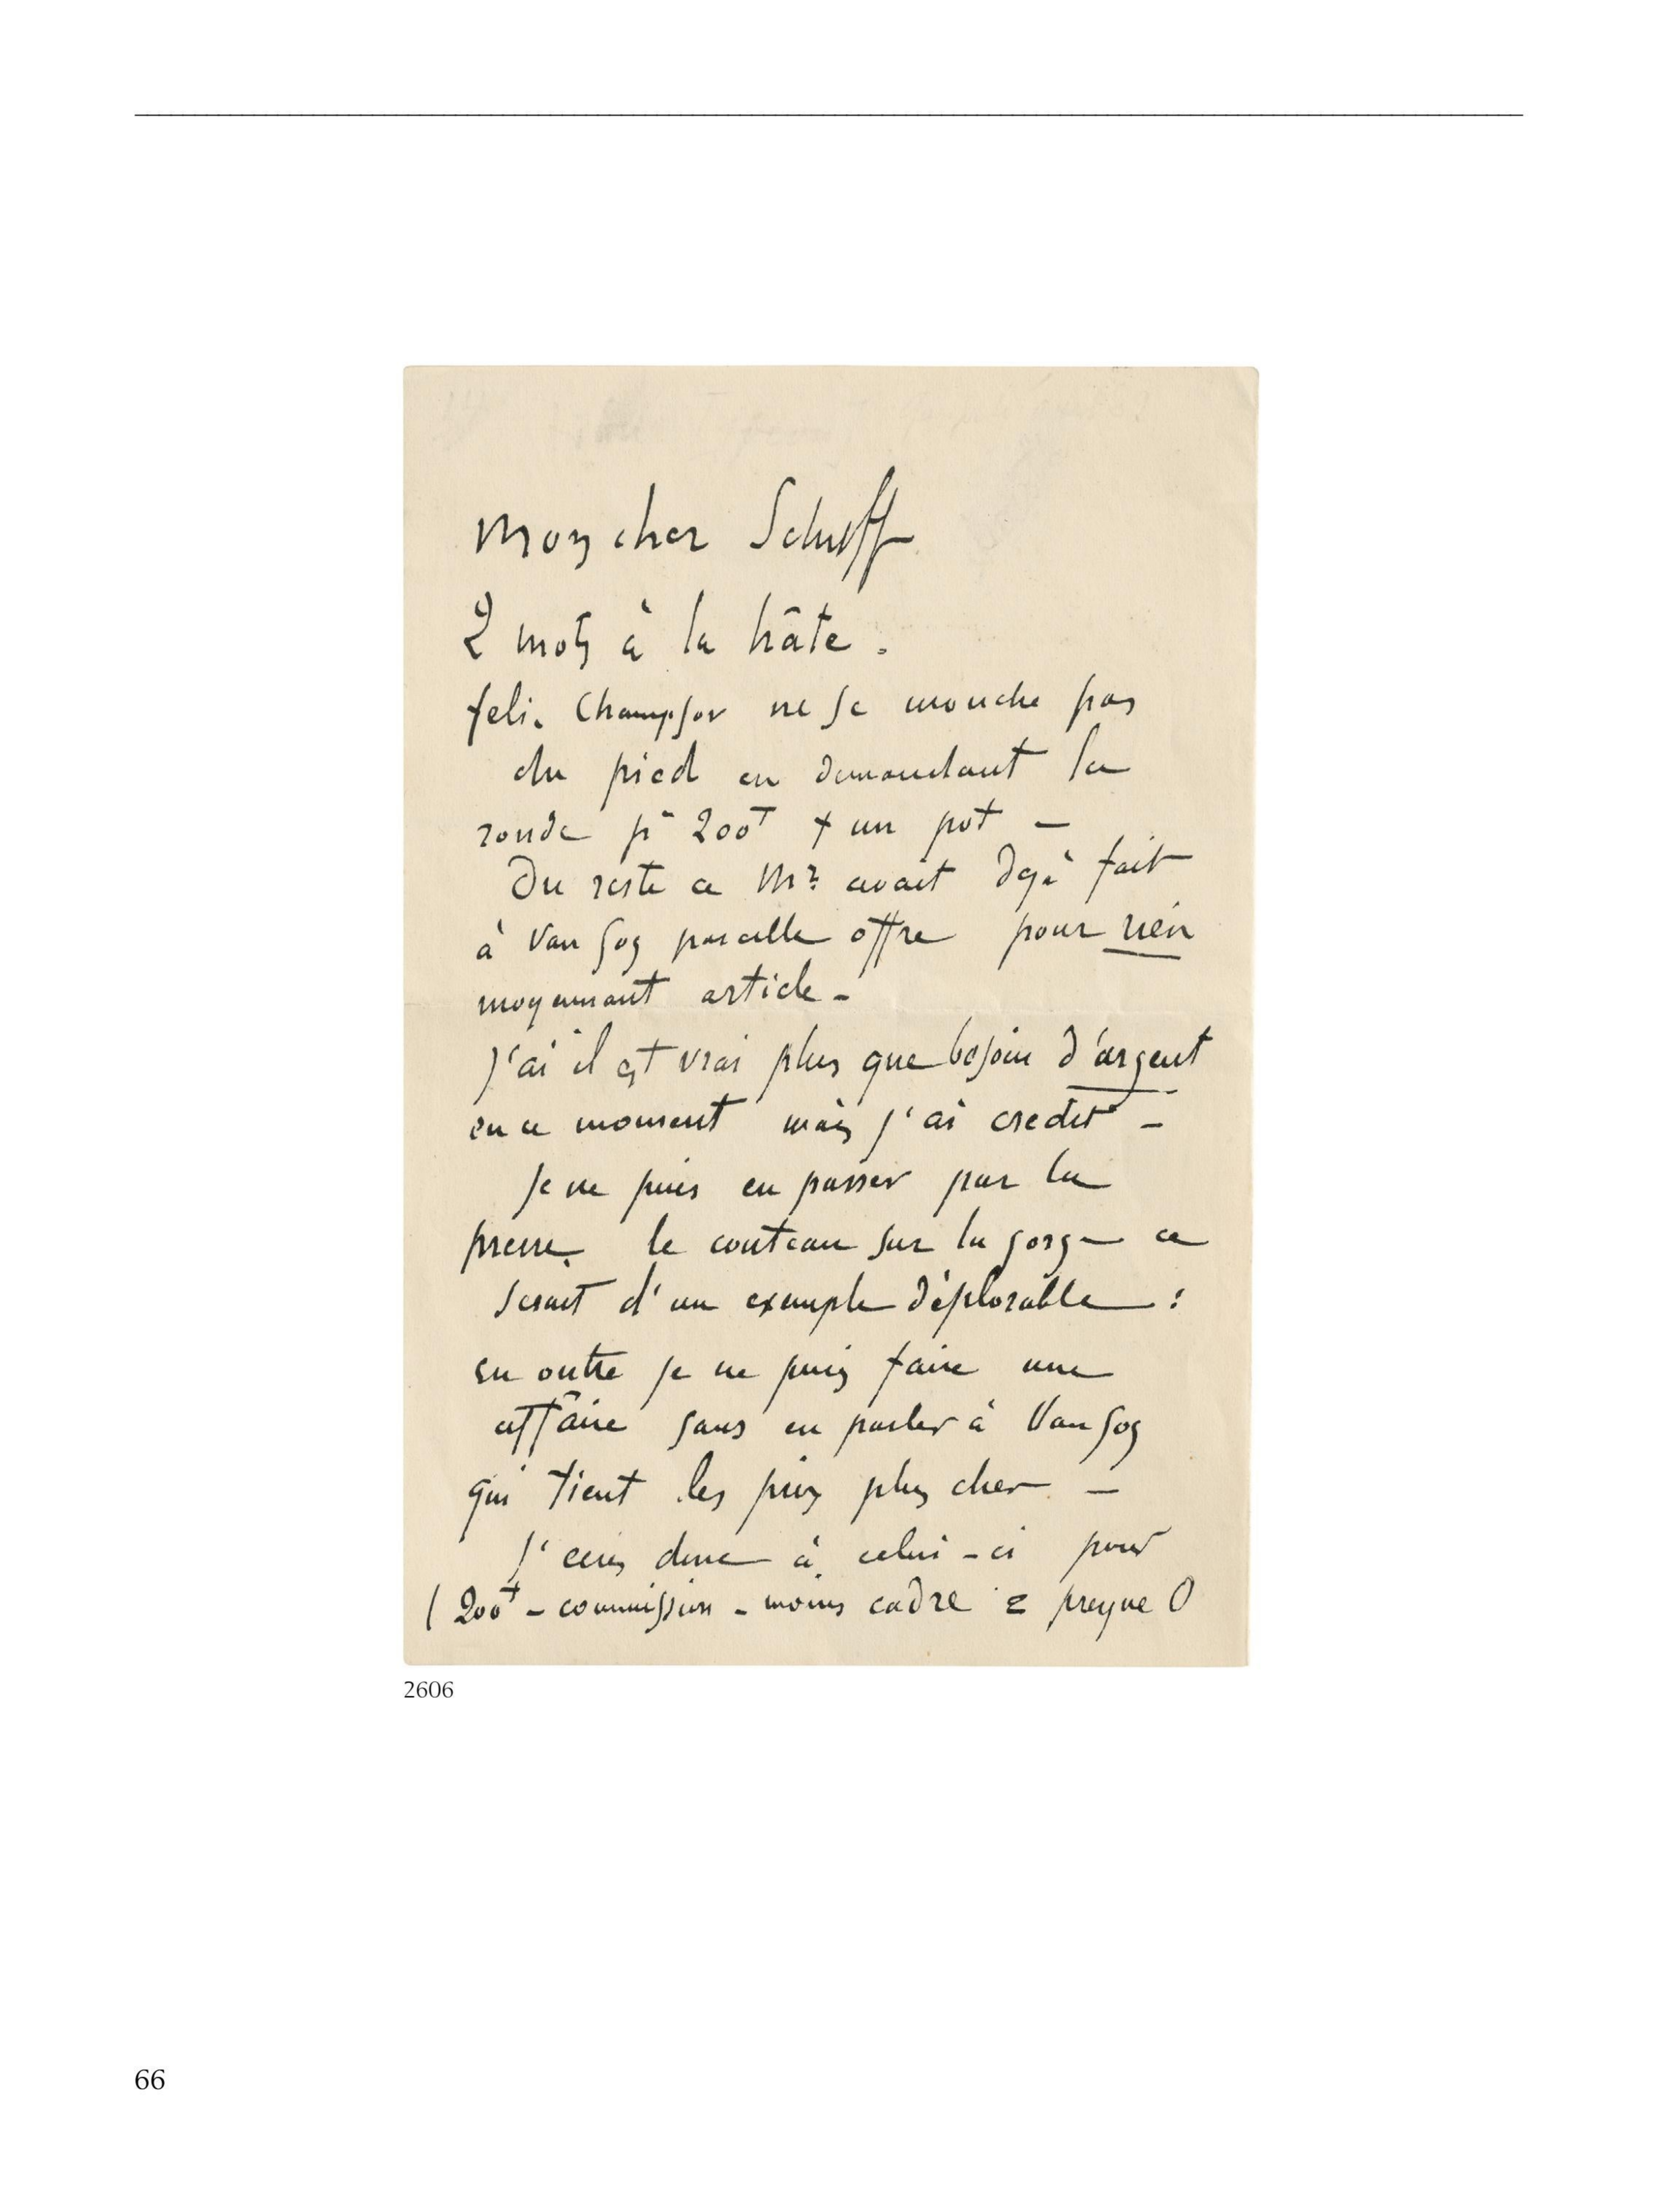 Mon cher Schuff
2 mots à la hâte.
feli. Champsor ne se mouche pas
du pied en demandant la
ronde pr 200f + un pot -
Du reste ce Mr avait dejà fait
à Van Gog pareille offre pour rien
moyennant article -
J'ai il est vrai plus que besoin d'argent
en ce moment mais j'ai credit -
Je ne puis en passer par la
presse. le couteau sur la gorge ce
serait d'un exemple déplorable :
en outre je ne puis faire une
affaire sans en parler à Van Gog
qui tient les prix plus cher -
J'ecris donc à celui-ci pour
( 200f - commission - moins cadre = presque 0
2606
66